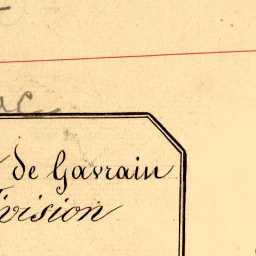 de Gavrain
ivision